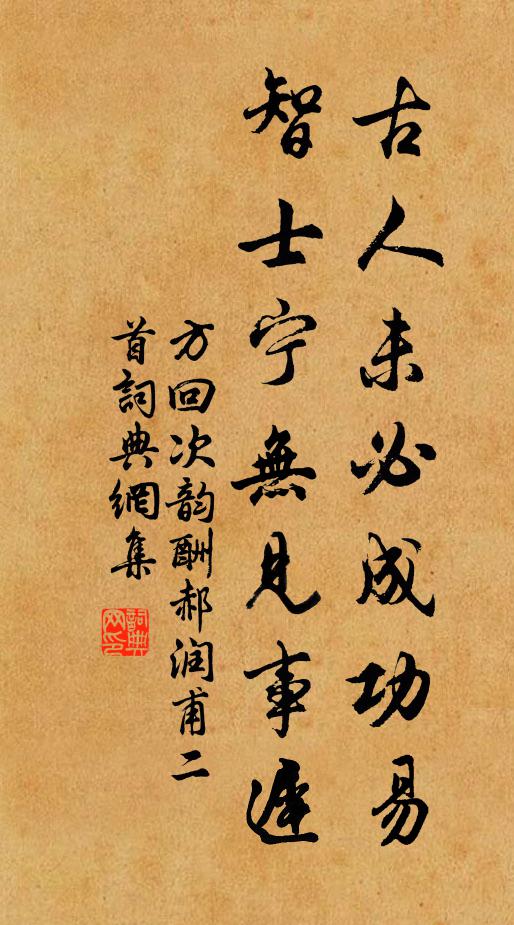 古人未必成功易
智士宁無見事遲
方回次韵酬郝润甫二
首詞典網集
詞典
网印